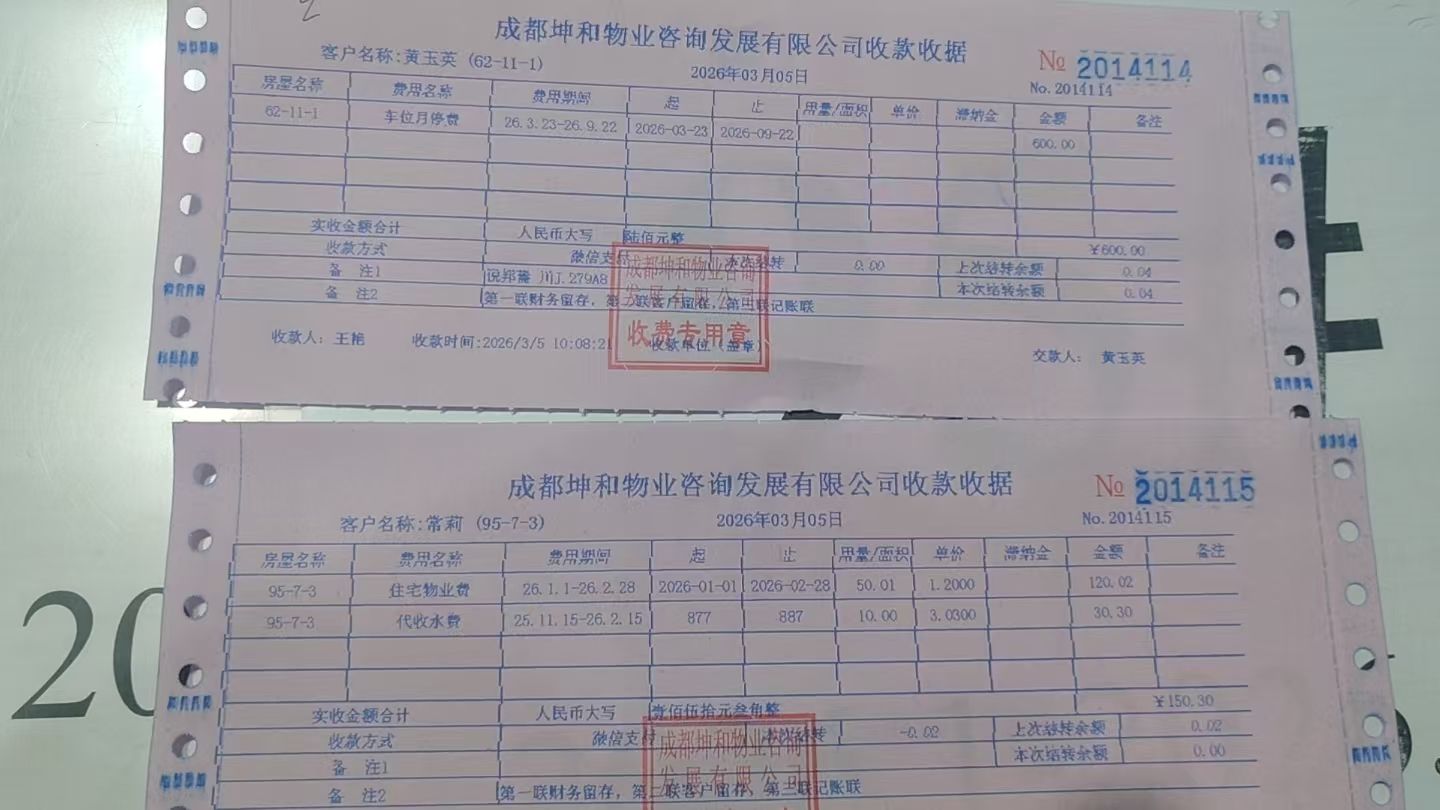 成都坤和物业咨询发展有限公司收款收据
客户名称:黄玉英 (62-11-1)
2026年03月05日
№ 2014114
No.2014114
房屋名称 费用名称 费用期间 起 止 用量/面积 单价 滞纳金 金额 备注
62-11-1 车位月停费 26.3.23-26.9.22 2026-03-23 2026-09-22 600.00
实收金额合计 人民币大写 陆佰元整 ¥600.00
收款方式 微信支付 本次结转 0.00 上次结转余额 0.04
备 注1 川J.279A8 本次结转余额 0.04
备 注2 第一联财务留存，第二联客户留存，第三联记账联
成都坤和物业咨询
发展有限公司
收费专用章
收款人: 王艳 收款时间:2026/3/5 10:08:21 收款单位（盖章） 交款人: 黄玉英
成都坤和物业咨询发展有限公司收款收据
客户名称:常莉 (95-7-3)
2026年03月05日
№ 2014115
No.2014115
房屋名称 费用名称 费用期间 起 止 用量/面积 单价 滞纳金 金额 备注
95-7-3 住宅物业费 26.1.1-26.2.28 2026-01-01 2026-02-28 50.01 1.2000 120.02
95-7-3 代收水费 25.11.15-26.2.15 877 887 10.00 3.0300 30.30
实收金额合计 人民币大写 壹佰伍拾元叁角整 ¥150.30
收款方式 微信支付 本次结转 -0.02 上次结转余额 0.02
备 注1 本次结转余额 0.00
备 注2 第一联财务留存，第二联客户留存，第三联记账联
成都坤和物业咨询
发展有限公司
20